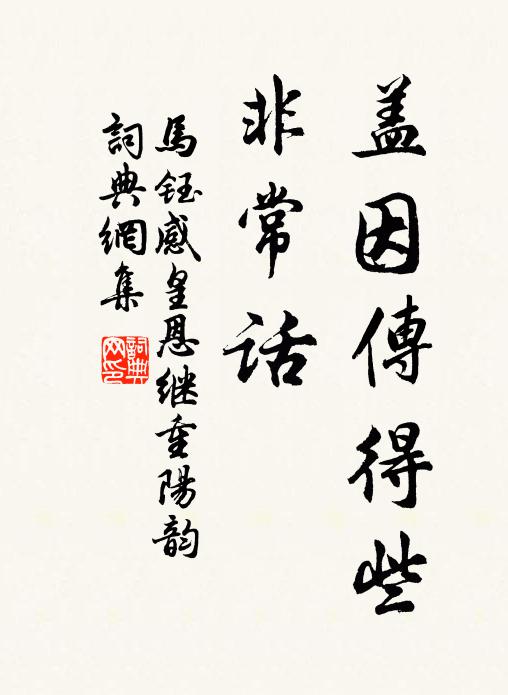 盖因傳得些
非常话
馬鈺感皇恩继重陽韵
詞典網集
詞典
网印